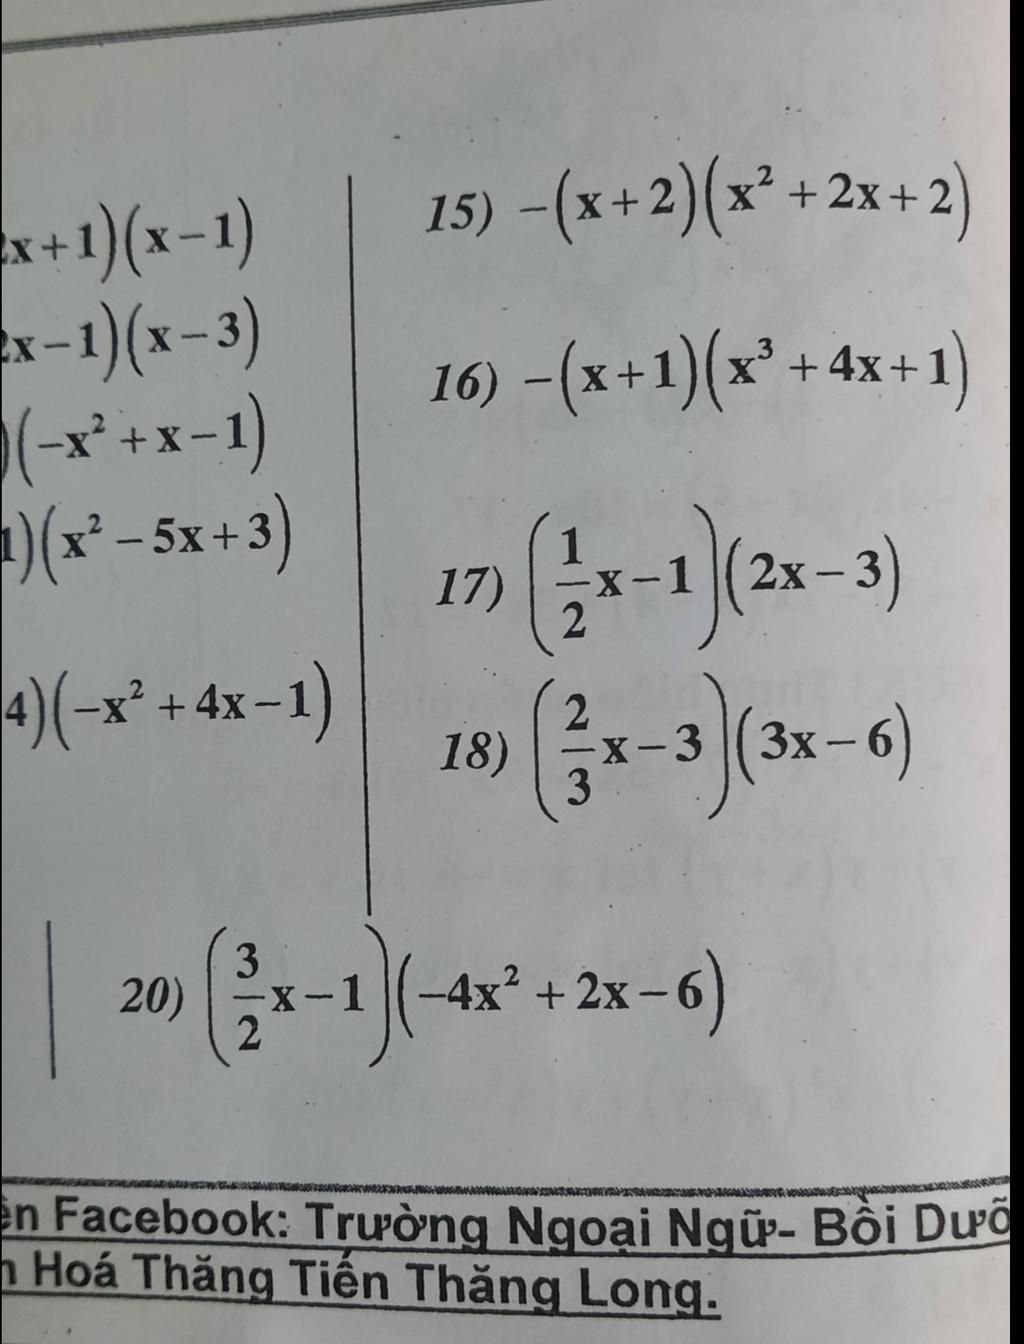 x+1)(x−1)
2x−1)(x−3)
)(−x² + x − 1)
1)(x² − 5x + 3)
4)(−x² + 4x − 1)
15) −(x+2)(x² + 2x + 2)
16) −(x+1)(x³ + 4x + 1)
17) (1/2 x − 1)(2x − 3)
18) (2/3 x − 3)(3x − 6)
20) (3/2 x − 1)(−4x² + 2x − 6)
ên Facebook: Trường Ngoại Ngữ- Bồi Dưỡ
Hoá Thăng Tiến Thăng Long.